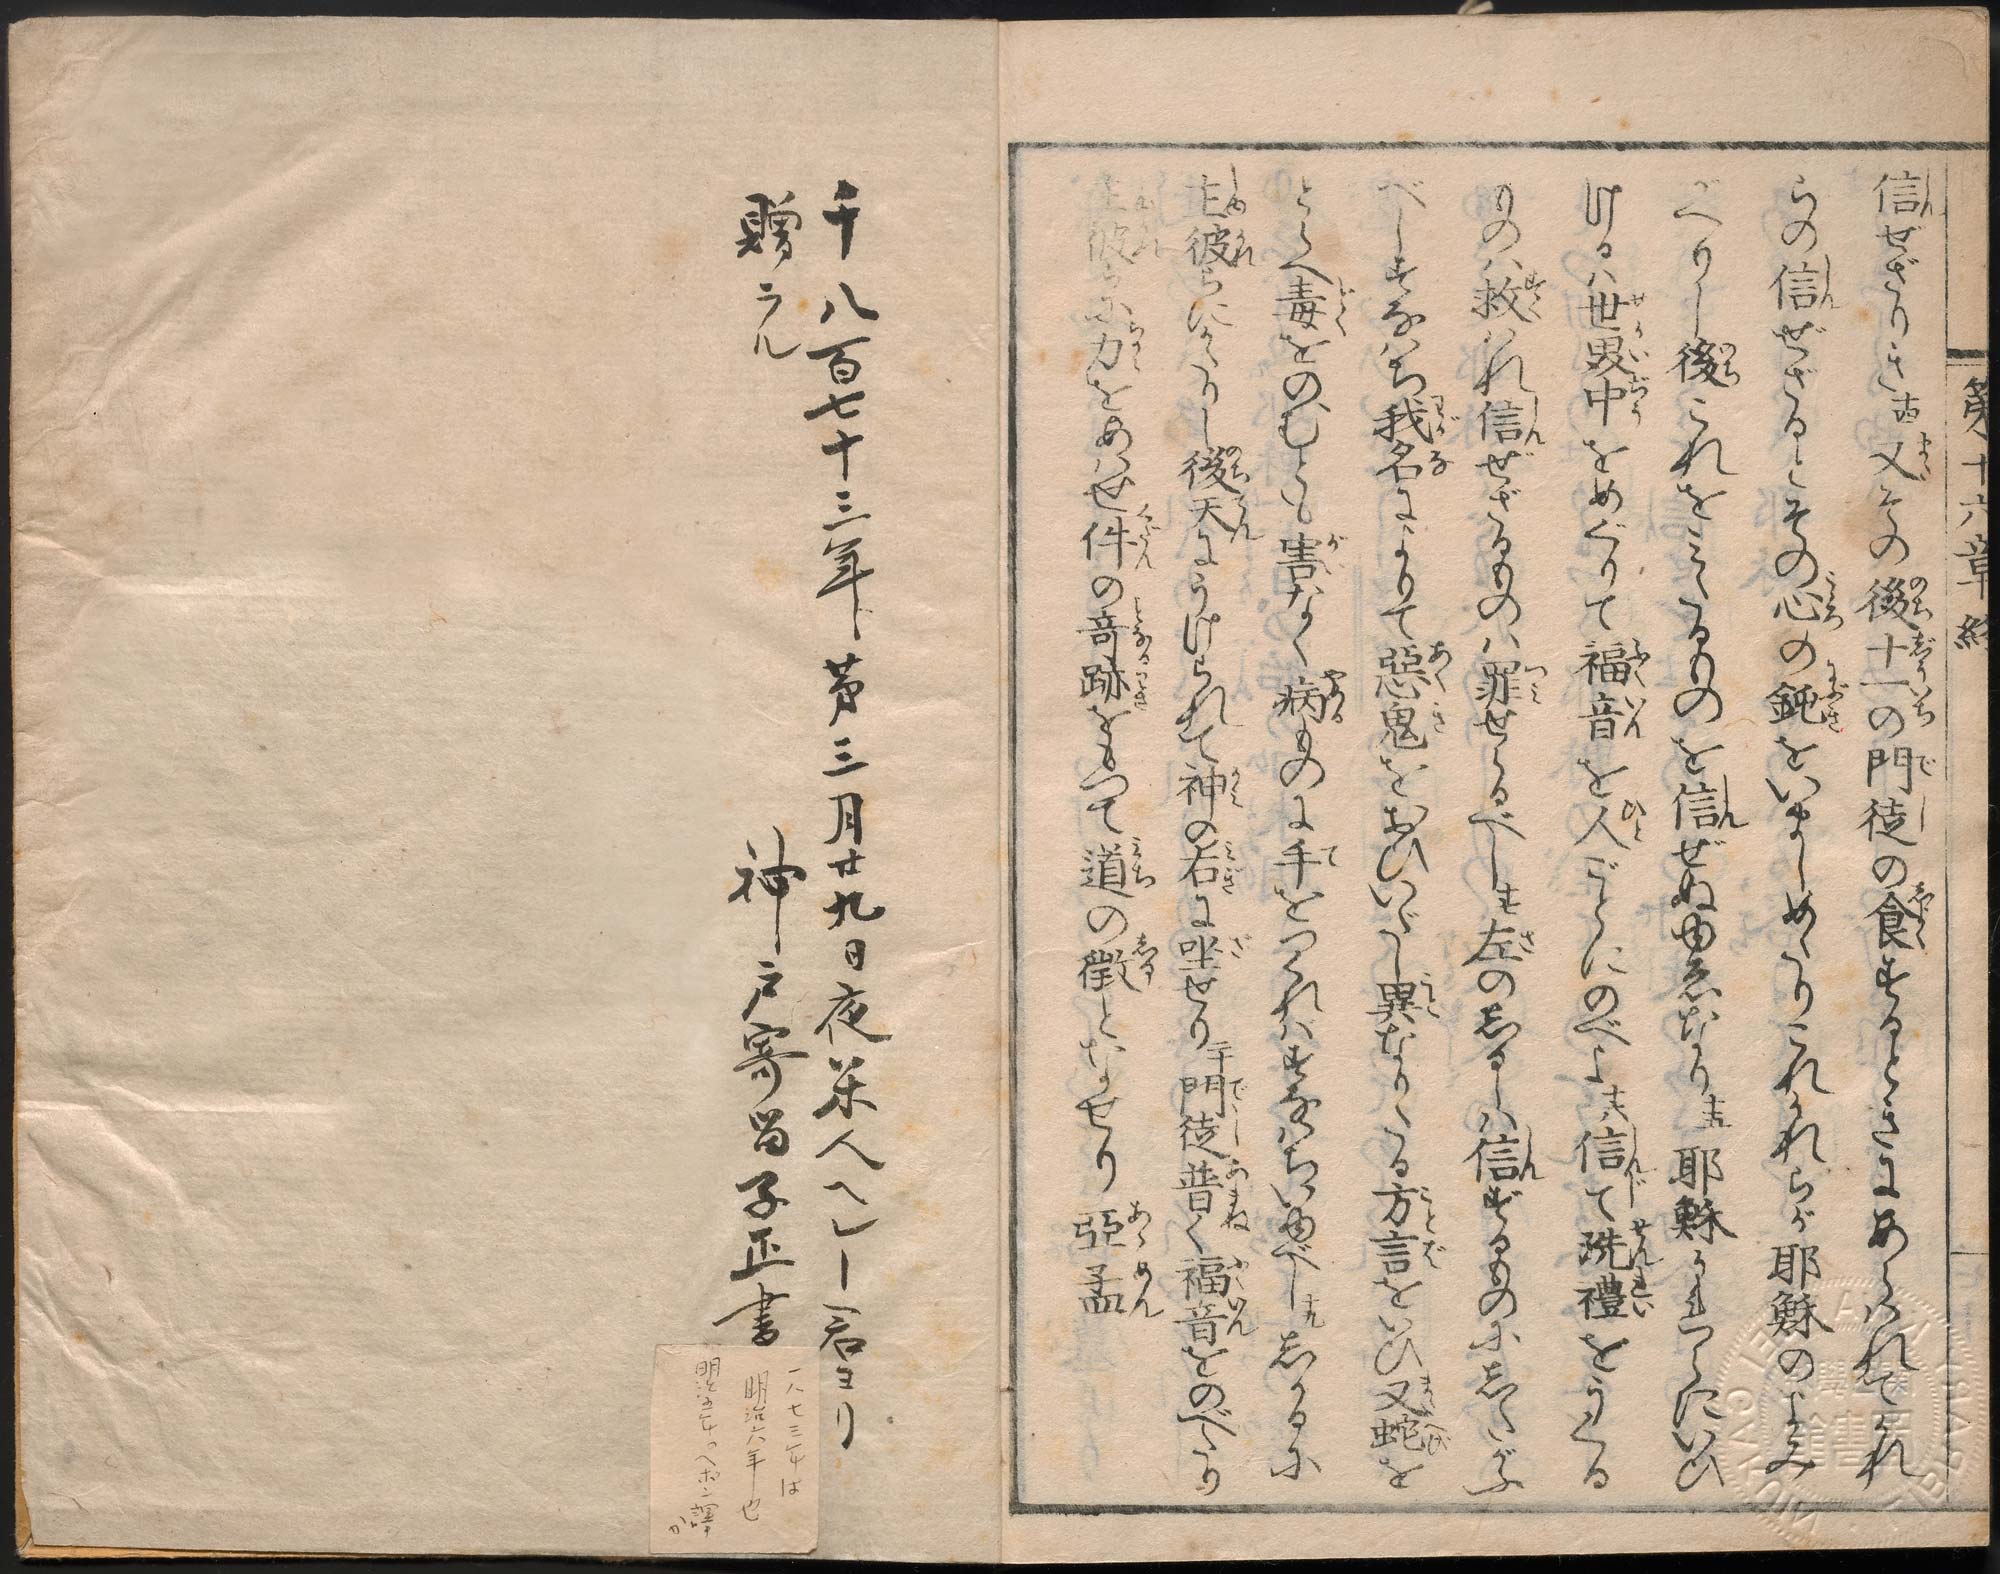 信ぜざりき十四又その後十一の門徒の食するときにあらはれてかれ
らの信ぜざるとその心の鈍をいましめたりこれかれらが耶穌のよみ
がへりし後これをみたるものを信ぜぬゆゑなり十五耶穌かれらにいひ
けるハ世界中をめぐりて福音を人ごとにのべよ十六信じて洗禮をうくる
ものハ救はれ信ぜざるものハ罪せらるべし十七左のしるしハ信ずるものにしたがふ
べしすなはち我名によりて惡鬼をおひいだし異なりたる方言をいひ十八又蛇を
とらへ毒をのむとも害なく病ものに手をつくればすなはちいゆべし十九しかるに
主彼らにかたりし後天にうけられて神の右に坐せり二十門徒普く福音をのべたり
主彼らに力をあはせ件の奇跡をもつて道の徴となせり亞孟
第十六章 終
千八百七十三年第三月廿九日夜米人ヘレー君ヨリ
贈ラル
神戸寄留子正書
一八七三年は
明治六年也
明治五年のヘボン譯
か